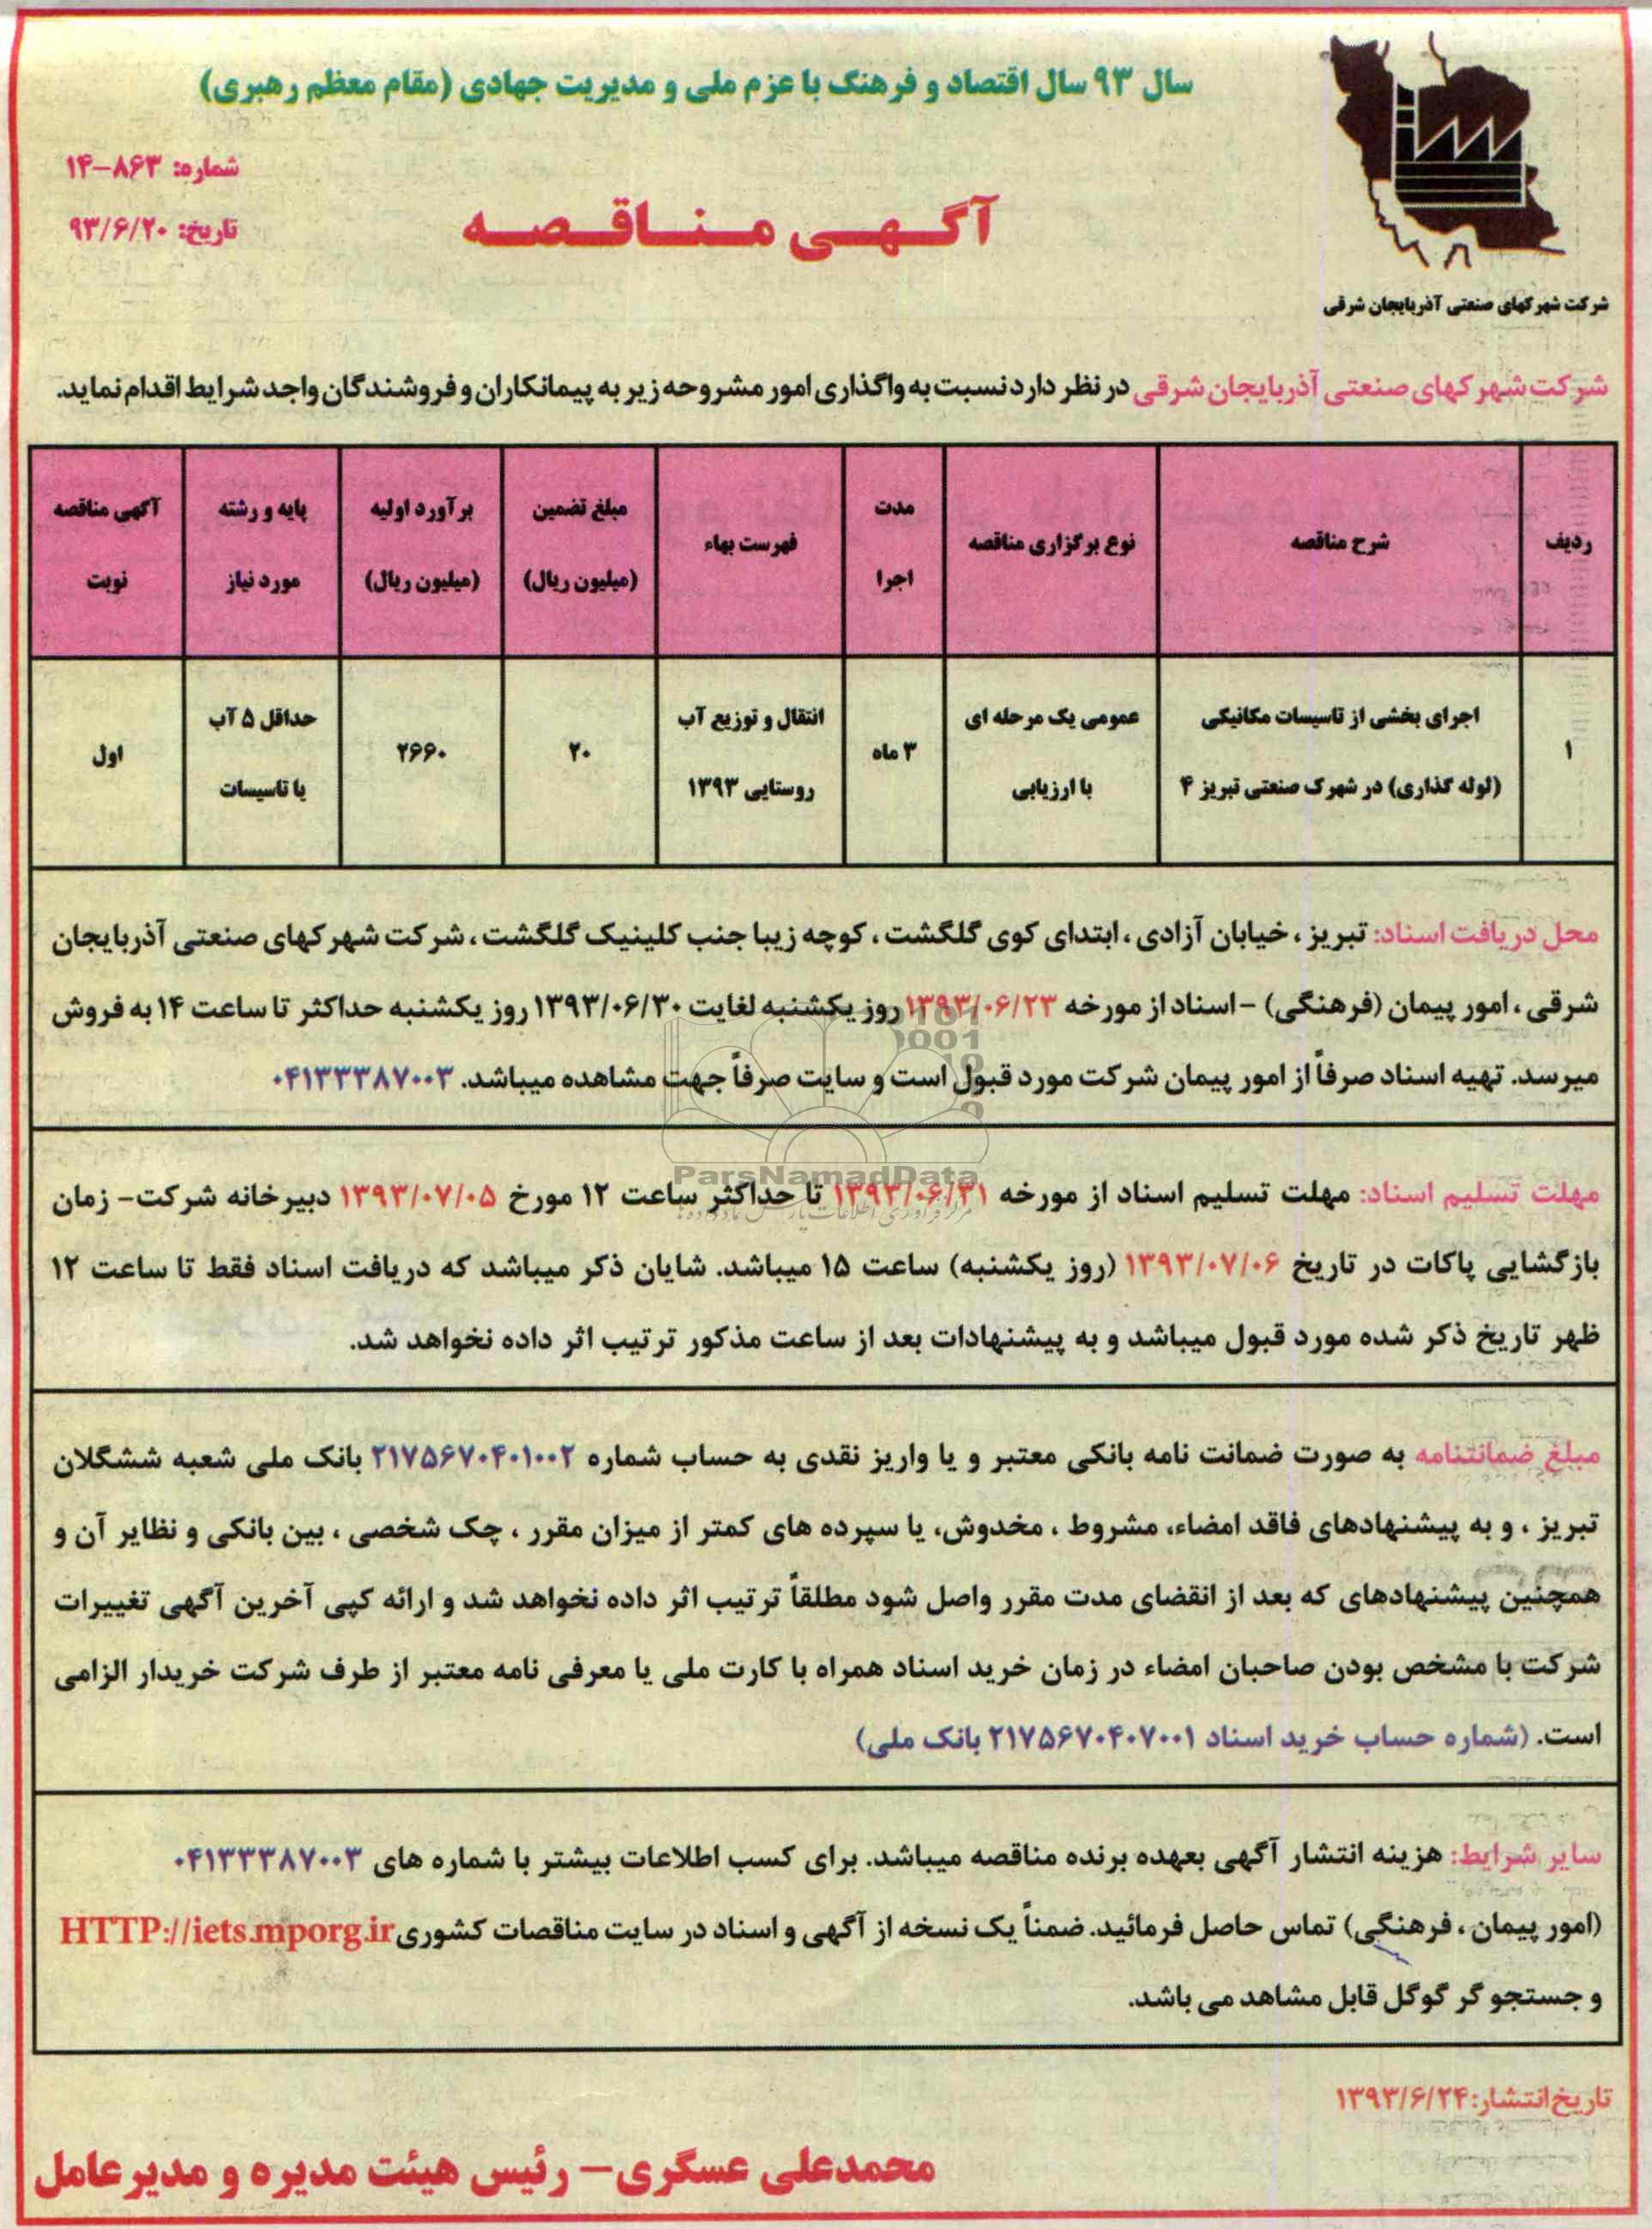 سال ۹۳ سال اقتصاد و فرهنگ با عزم ملی و مدیریت جهادی (مقام معظم رهبری)
شماره: ۸۶۳-۱۴
تاریخ: ۹۳/۶/۲۰
آگهی مناقصه
شرکت شهرکهای صنعتی آذربایجان شرقی
شرکت شهرکهای صنعتی آذربایجان شرقی در نظر دارد نسبت به واگذاری امور مشروحه زیر به پیمانکاران و فروشندگان واجد شرایط اقدام نماید.
ردیف
شرح مناقصه
نوع برگزاری مناقصه
مدت
اجرا
فهرست بهاء
مبلغ تضمین
(میلیون ریال)
برآورد اولیه
(میلیون ریال)
پایه و رشته
مورد نیاز
آگهی مناقصه
نوبت
۱
اجرای بخشی از تاسیسات مکانیکی
(لوله گذاری) در شهرک صنعتی تبریز ۴
عمومی یک مرحله ای
با ارزیابی
۳ ماه
انتقال و توزیع آب
روستایی ۱۳۹۳
۲۰
۲۶۶۰
حداقل ۵ آب
یا تاسیسات
اول
محل دریافت اسناد: تبریز ، خیابان آزادی ، ابتدای کوی گلگشت ، کوچه زیبا جنب کلینیک گلگشت ، شرکت شهرکهای صنعتی آذربایجان
شرقی ، امور پیمان (فرهنگی) -اسناد از مورخه ۱۳۹۳/۰۶/۲۳ روز یکشنبه لغایت ۱۳۹۳/۰۶/۳۰ روز یکشنبه حداکثر تا ساعت ۱۴ به فروش
میرسد. تهیه اسناد صرفاً از امور پیمان شرکت مورد قبول است و سایت صرفاً جهت مشاهده میباشد. ۰۴۱۳۳۳۸۷۰۰۳
ParsNamadData
مهلت تسلیم اسناد: مهلت تسلیم اسناد از مورخه ۱۳۹۳/۰۶/۳۱ تا حداکثر ساعت ۱۲ مورخ ۱۳۹۳/۰۷/۰۵ دبیرخانه شرکت- زمان
بازگشایی پاکات در تاریخ ۱۳۹۳/۰۷/۰۶ (روز یکشنبه) ساعت ۱۵ میباشد. شایان ذکر میباشد که دریافت اسناد فقط تا ساعت ۱۲
ظهر تاریخ ذکر شده مورد قبول میباشد و به پیشنهادات بعد از ساعت مذکور ترتیب اثر داده نخواهد شد.
مبلغ ضمانتنامه به صورت ضمانت نامه بانکی معتبر و یا واریز نقدی به حساب شماره ۲۱۷۵۶۷۰۴۰۱۰۰۲ بانک ملی شعبه ششگلان
تبریز ، و به پیشنهادهای فاقد امضاء، مشروط ، مخدوش، یا سپرده های کمتر از میزان مقرر ، چک شخصی ، بین بانکی و نظایر آن و
همچنین پیشنهادهای که بعد از انقضای مدت مقرر واصل شود مطلقاً ترتیب اثر داده نخواهد شد و ارائه کپی آخرین آگهی تغییرات
شرکت با مشخص بودن صاحبان امضاء در زمان خرید اسناد همراه با کارت ملی یا معرفی نامه معتبر از طرف شرکت خریدار الزامی
است. (شماره حساب خرید اسناد ۲۱۷۵۶۷۰۴۰۷۰۰۱ بانک ملی)
سایر شرایط: هزینه انتشار آگهی بعهده برنده مناقصه میباشد. برای کسب اطلاعات بیشتر با شماره های ۰۴۱۳۳۳۸۷۰۰۳
(امور پیمان ، فرهنگی) تماس حاصل فرمائید. ضمناً یک نسخه از آگهی و اسناد در سایت مناقصات کشوری HTTP://iets.mporg.ir
و جستجو گر گوگل قابل مشاهد می باشد.
تاریخ انتشار: ۱۳۹۳/۶/۲۴
محمدعلی عسگری- رئیس هیئت مدیره و مدیرعامل